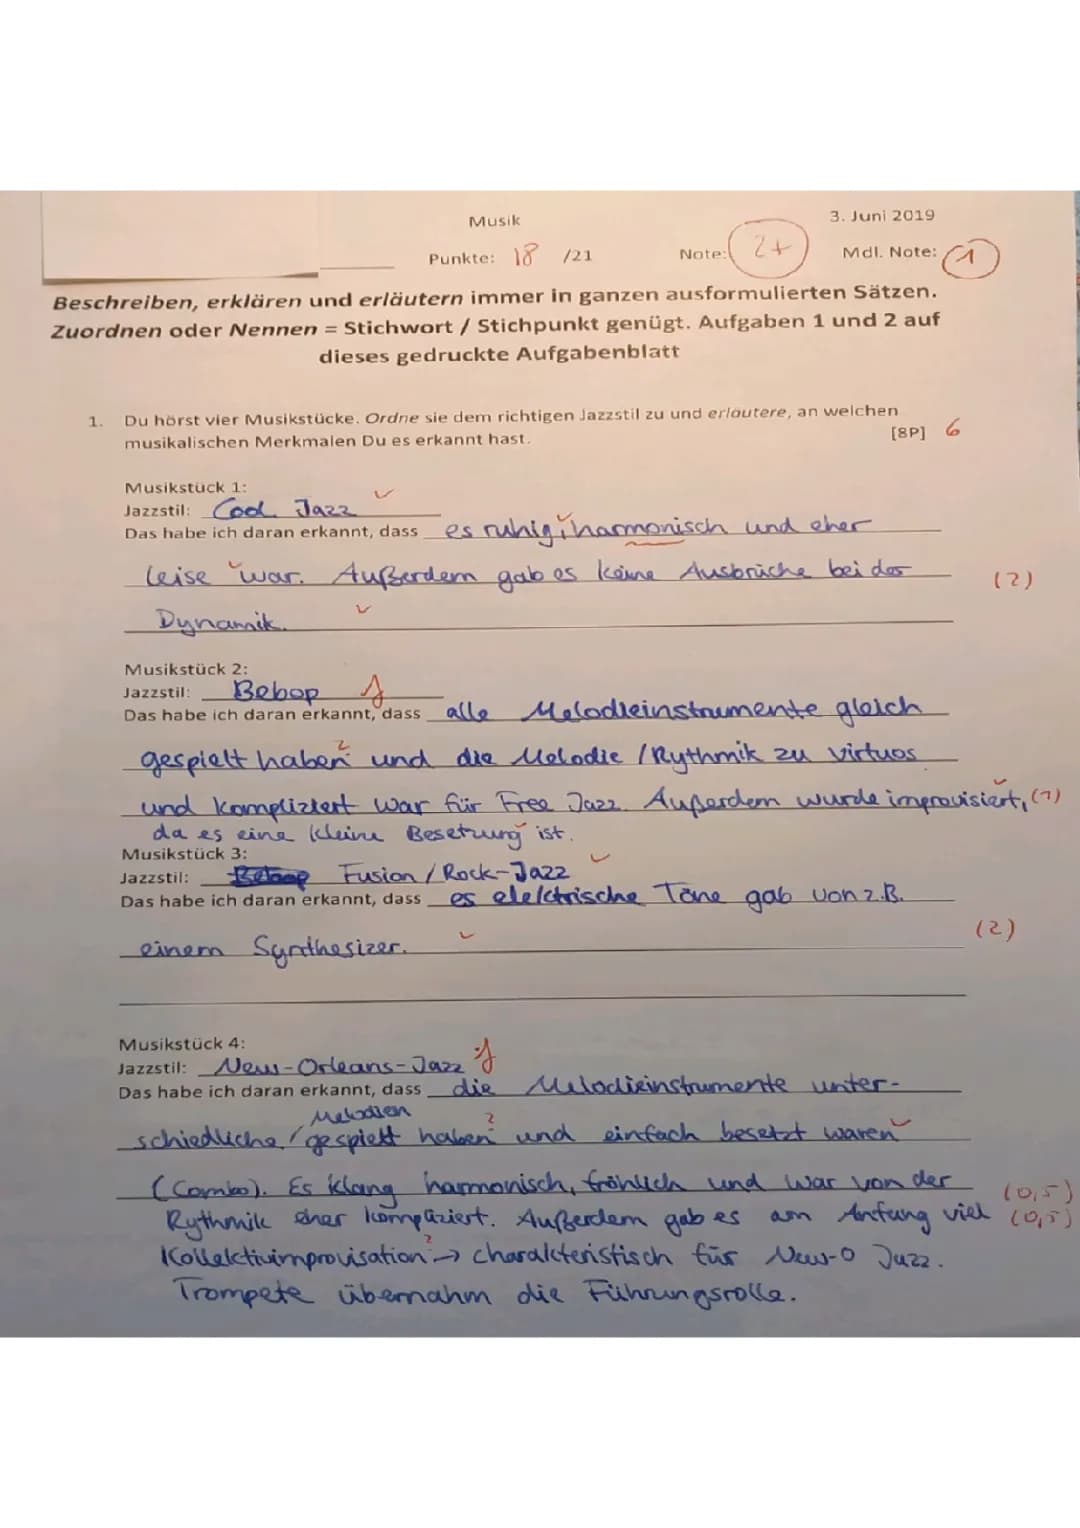 Musik
3. Juni 2019
Punkte: 18 /21
Note: 2+
Mdl. Note: 1
Beschreiben, erklären und erläutern immer in ganzen ausformulierten Sätzen.
Zuordnen oder Nennen = Stichwort / Stichpunkt genügt. Aufgaben 1 und 2 auf
dieses gedruckte Aufgabenblatt
1. Du hörst vier Musikstücke. Ordne sie dem richtigen Jazzstil zu und erläutere, an welchen
musikalischen Merkmalen Du es erkannt hast. [8P] 6
Musikstück 1:
Jazzstil: Cool Jazz
Das habe ich daran erkannt, dass es ruhig, harmonisch und eher
leise war. Außerdem gab es keine Ausbrüche bei der (2)
Dynamik.
Musikstück 2:
Jazzstil: Bebop
Das habe ich daran erkannt, dass alle Melodieinstrumente gleich
gespielt haben und die Melodie / Rythmik zu virtuos
und kompliziert war für Free Jazz. Außerdem wurde improvisiert, (1)
da es eine kleine Besetzung ist.
Musikstück 3:
Jazzstil: Fusion / Rock-Jazz
Das habe ich daran erkannt, dass es elektrische Töne gab von z.B.
einem Synthesizer. (2)
Musikstück 4:
Jazzstil: New-Orleans-Jazz
Das habe ich daran erkannt, dass die Melodieinstrumente unter-
Melodien
schiedliche / gespielt haben und einfach besetzt waren
(Combo). Es klang harmonisch, fröhlich und war von der (0,5)
Rythmik eher kompliziert. Außerdem gab es am Anfang viel (0,5)
Kollektivimprovisation → charakteristisch für New-O Jazz.
Trompete übernahm die Führungsrolle.